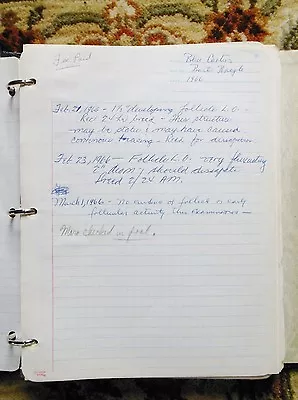 Fee Paid
Blue Castle
1966
Feb. 21, 1966 - 1½" developing follicle L.O.
Rec 24 hr. breed - This structure
may be static & may have caused
continuous teasing -
Feb 23, 1966 - Follicle L.O. very fluctuating
2" diam & should dissipate
breed 2/24 A.M.
March 1, 1966 - No evidence of follicle or early
follicular activity this examination -
Mare checked in foal.